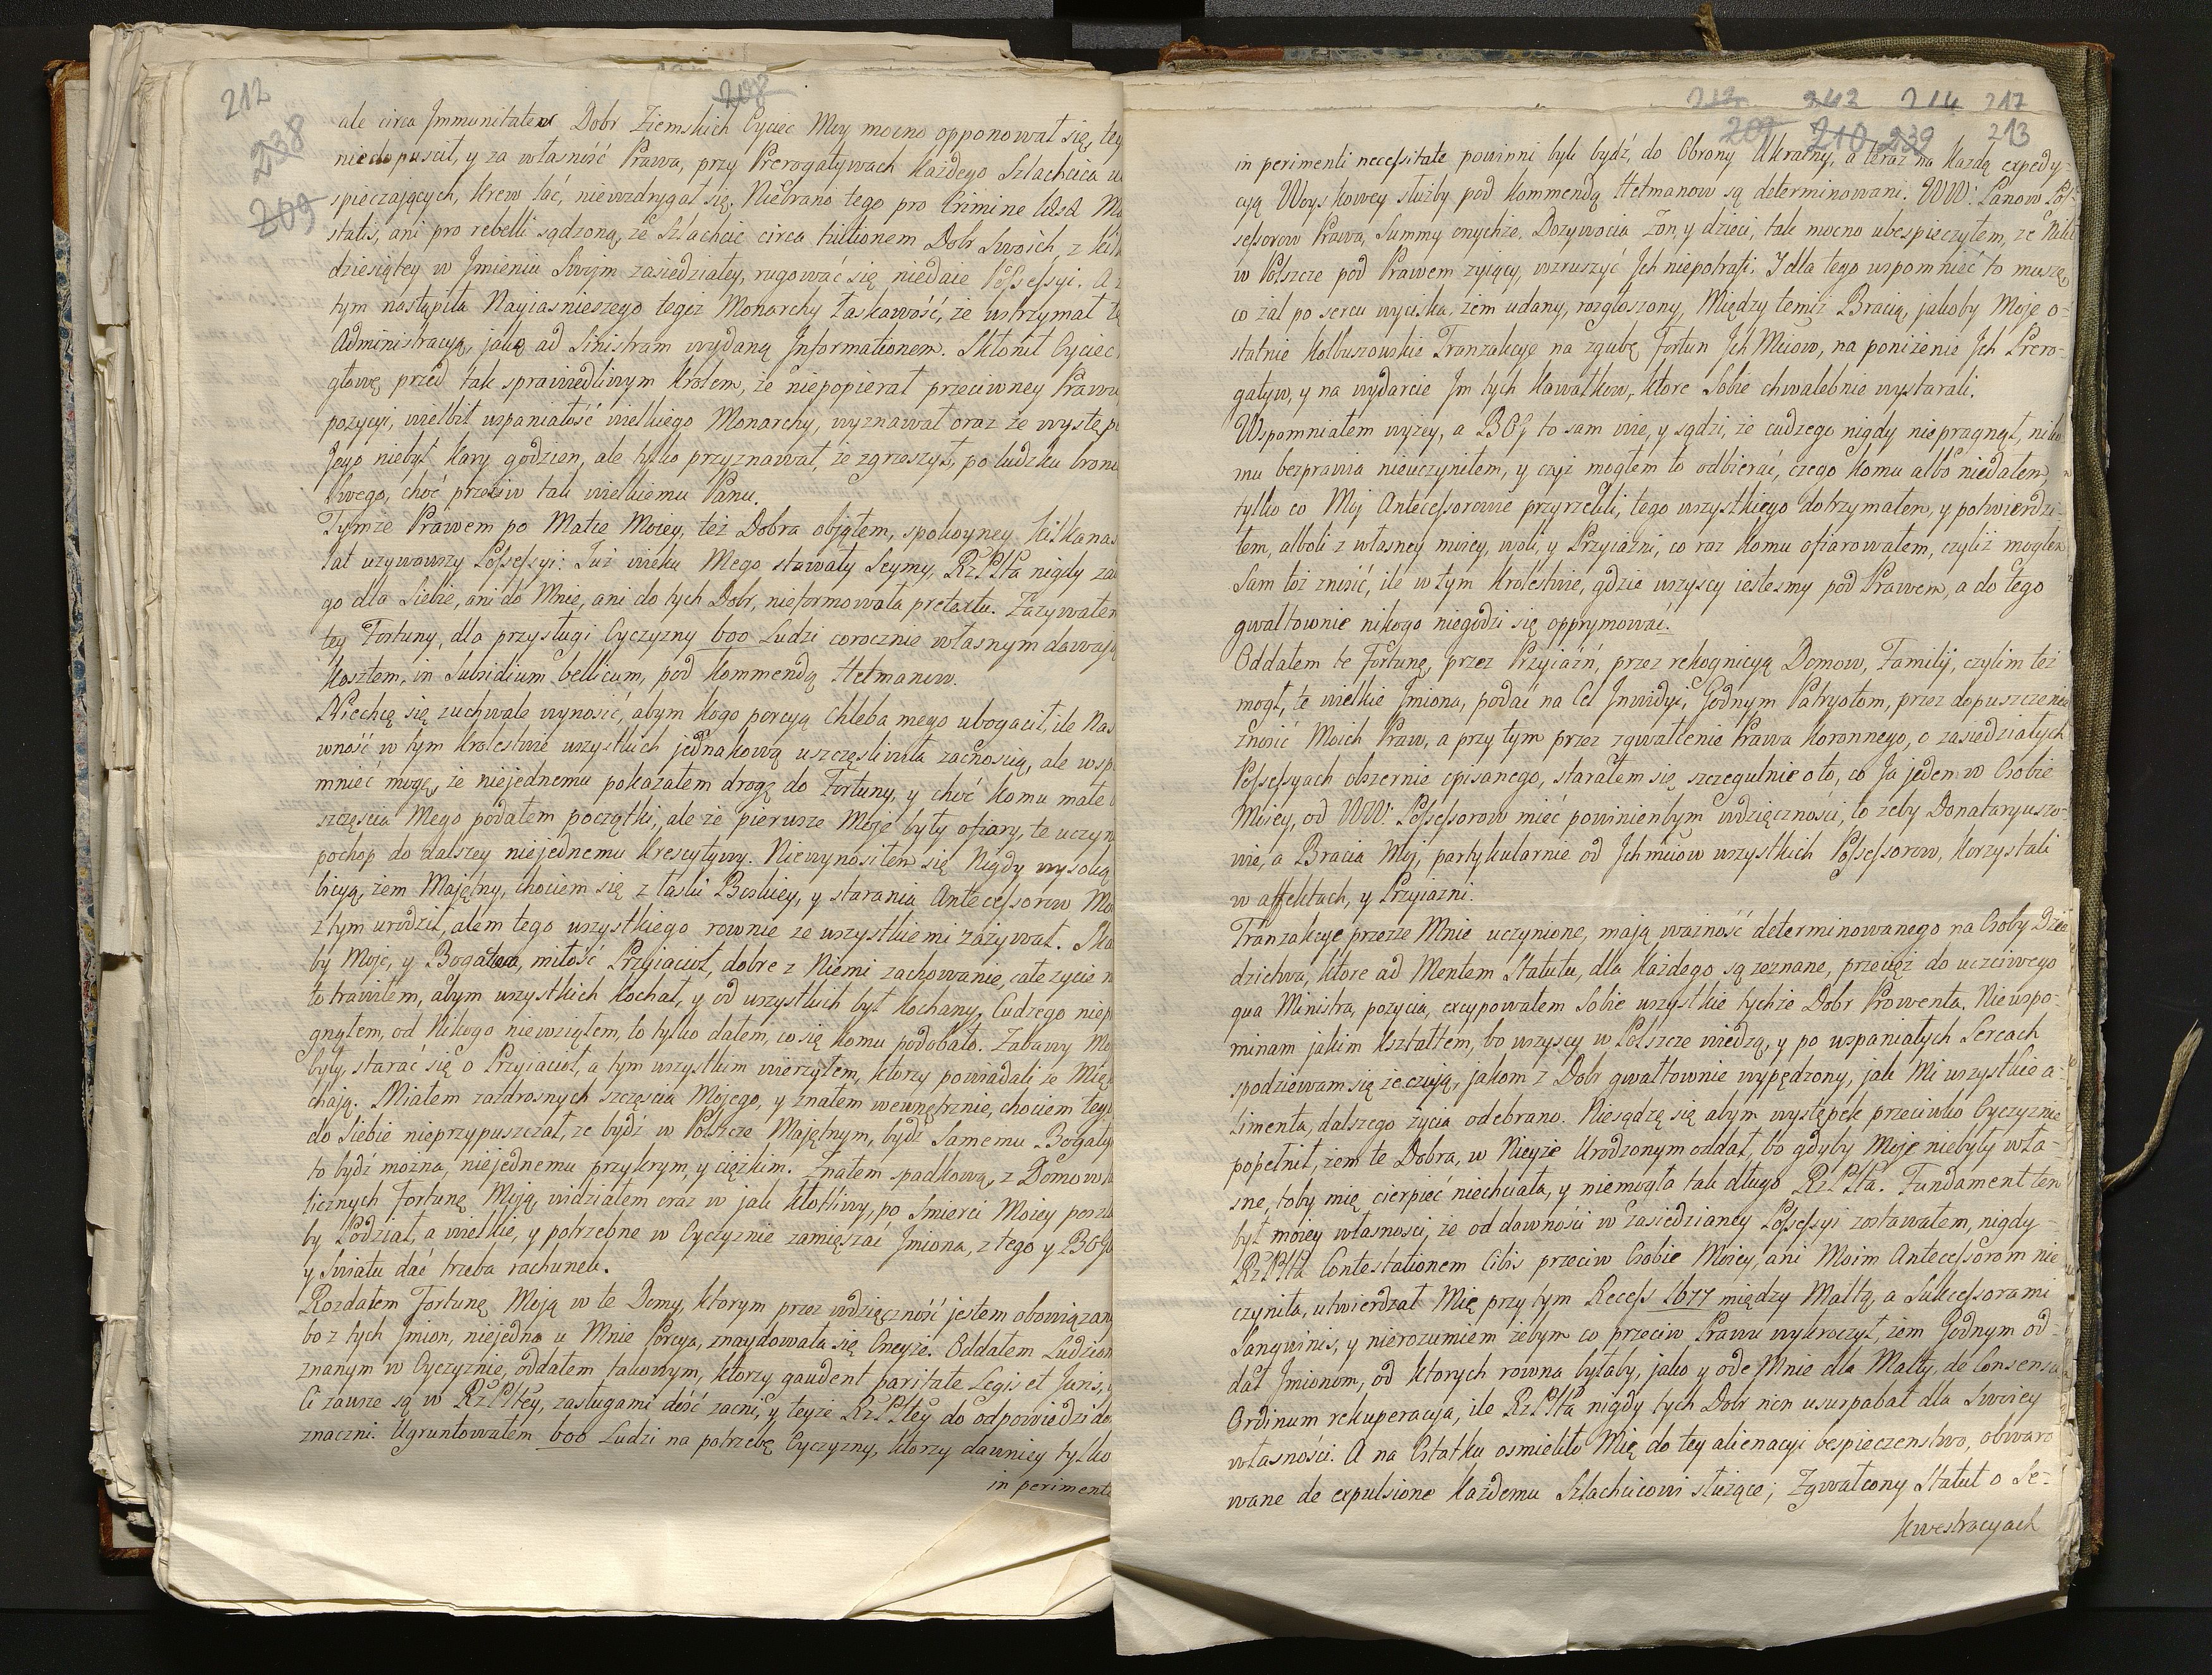 212
208
238
209
ale circa Immunitatem Dobr Ziemskich Oyciec Moy mocno opponował się, tey
niedopuścił, y za własność Prawa, przy Prerogatywach każdego Szlachcica
spieczających, krew lać, niewzdrygał się. Niebrano tego pro Crimine
statis, ani pro rebelli sądzono, że Szlachcic circa tuitionem Dobr Swoich, z
dziesiątey w Jmieniu Swoim zasiedziałey, rugować się niedaie Possessyi. A
tym nastąpiła Nayiasnieszego tegoż Monarchy łaskawość, że wstrzymał
Administracyą, jako ad Sinistram wydaną Informationem. Skłonił Oyciec
głowę, przed tak sprawiedliwym Krolem, że niepopierał przeciwney Prawu
pozycyi, wielbił wspaniałość wielkiego Monarchy, wyznawał oraz że występ
Jego niebył kary godzien, ale tylko przyznawał, że zgrzeszył, po ludzku
Swego, choć przeciw tak wielkiemu Panu.
Tymże Prawem po Matce Moiey, też Dobra objąłem, spokoyney kilkanas
lat używawszy Possessyi: Już wieku Mego stawały Seymy, RzPlta nigdy
go dla Siebie, ani do Mnie, ani do tych Dobr, nieformowała pretextu. Zażywałem
tey Fortuny, dla przysługi Oyczyzny 600 Ludzi corocznie własnym dawają
Kosztem, in Subsidium bellicum, pod Kommendą Hetmanow.
Niechcę się zuchwale wynosić, abym kogo porcyą chleba mego ubogacił, ile
wność w tym Krolestwie wszystkich jednakową uszczęśliwiła zacnością, ale wsp
mnieć mogę, że niejednemu pokazałem drogę do Fortuny, y choć komu małe
szczęścia Mego podałem początki, ale że pierwsze Moje były ofiary, te uczyn
pochop do dalszey niejednemu krescytywy. Niewynosiłem się Nigdy wysoką
bicyą, żem Majętny, chociem się z łaski Boskiey, y starania Antecessorow
z tym urodził, alem tego wszystkiego rownie ze wszystkiemi zażywał.
by Moje, y Bogactwa, miłość Przyiacioł, dobre z Niemi zachowanie, całe życie
to trawiłem, abym wszystkich kochał, y od wszystkich był kochany, Cudzego
gnąłem, od Nikogo niewziąłem, to tylko dałem, co się komu podobało. Zabawy
były, starać się o Przyiacioł, a tym wszystkim wierzyłem, ktorzy powiadali że Mię
chają. Miałem zazdrosnych szczęścia Mojego, y znałem wewnętrznie, chociem
do Siebie nieprzypuszczał, że bydź w Polszcze Majętnym, bydź Samemu Bogaty
to bydź można, niejednemu przykrym, y ciężkim. Znałem spadkową, z Domow
licznych Fortunę Moją, widziałem oraz w jak kłotliwy, po Smierci Moiey
by Podział, a wielkie, y potrzebne w Oyczyznie zamięszać Jmiona, z tego y BOGU
y Swiatu dać trzeba rachunek.
Rozdałem Fortunę Moją w te Domy, ktorym przez wdzięczność jestem obowiązany
bo z tych Jmion, niejedna u Mnie Porcya, znaydowała się Oneyże. Oddałem Ludziom
znanym w Oyczyznie, oddałem takowym, ktorzy gaudent paritate Legis et Juris,
Ci zawsze są w RzPltey, zasługami dość zacni, y teyże RzPltey do odpowiedzi
znaczni. Ugruntowałem 600 Ludzi na potrzebę Oyczyzny, ktorzy dawniey tylko
in periment
242 214 217
209 210 239 213
in perimenti necessitate powinni byli bydź, do Obrony Ukrainy, a teraz na każdą expedy-
cyą Woyskowey służby pod Kommendą Hetmanow są determinowani. WW: Panow Pos-
sessorow Prawa, Summy onychże. Dożywocia Żon, y dzieci, tak mocno ubespieczyłem, że Nikt
w Polszcze pod Prawem żyiący, wzruszyć Jch niepotrafi. I dla tego wspomnieć to muszę,
co żal po sercu wyciska, żem udany, rozgłoszony, Między temiż Bracią, jakoby Moje o-
statnie Kolbuszowskie Tranzakcye na zgubę Fortun Jch Mciow, na poniżenie Jch Prero-
gatyw, y na wydarcie Im tych Kawałkow, ktore Sobie chwalebnie wystarali.
Wspomniałem wyżey, a BOG to sam wie, y sądzi, że cudzego nigdy niepragnął, niko-
mu bezprawia nieuczyniłem, y czyż mogłem to odbierać, czego komu albo niedałem,
tylko co Moj Antecessorowie przyrzekli, tego wszystkiego dotrzymałem, y potwierdzi-
łem, alboli z własney moiey, woli, y Przyiaźni, co raz komu ofiarowałem, czyliż mogłem
Sam toż znosić, ile w tym Krolestwie, gdzie wszyscy iestesmy pod Prawem, a do tego
gwałtownie nikogo niegodzi się opprymować.
Oddałem te Fortunę, przez Przyiaźń, przez rekognicyą Domow, Familij, czylim też
mogł, te wielkie Jmiona, podać na Cel Inwidyi, Godnym Patryotom, przez dopuszczenie
znosić Moich Praw, a przy tym przez zgwałcenie Prawa Koronnego, o zasiedziałych
Possessyach obszernie opisanego, starałem się szczegulnie o to, co Ja jeden w Osobie
Moiey, od WW: Possessorow mieć powinienbym wdzięczności, to żeby Donataryuszo-
wie, a Bracia Moj, partykularnie od Jchmciow wszystkich Possessorow, korzystali
w affektach, y Przyiazni.
Tranzakcye przeze Mnie uczynione, mają ważność determinowanego na Osoby Dzie-
dzictwa, ktore ad Mentem Statutu, dla każdego są zeznane, przecięż do uczciwego
qua Ministra, pożycia, excypowałem Sobie wszystkie tychże Dobr Prowenta. Niewspo-
minam jakim kształtem, bo wszyscy w Polszcze wiedzą, y po wspaniałych Sercach
spodziewam się że czują, jakom z Dobr gwałtownie wypędzony, jak Mi wszystkie a-
limenta, dalszego życia odebrano. Niesądzę się abym występek przeciwko Oyczyznie
popełnił, żem te Dobra, w Nieyże Urodzonym oddał, bo gdyby Moje niebyły wła-
sne, toby mię cierpieć niechciała, y niemogła tak długo RzPlta. Fundament ten
był moiey własności, że od dawności w zasiedzianey Possessyi zostawałem, nigdy
RzPlta Contestationem Litis przeciw Osobie Moiey, ani Moim Antecessorom nie
czyniła, utwierdzał Mię przy tym Recess 1677 między Maltą, a Sukcessorami
Sangwinis, y nierozumiem żebym co przeciw Prawu wykroczył, żem Godnym od-
dał Jmionom, od ktorych rowna byłaby, jako y ode Mnie dla Malty, de Consensu
Ordinum rekuperacyja, ile RzPlta nigdy tych Dobr non usurpabat dla Swoiey
własności. A na Ostatku osmieliło Mię do tey alienacyi bespieczenstwo, obwaro
wane de expulsione każdemu Szlachcicowi służące; Zgwałcony Statut o Se-
kwestracyach